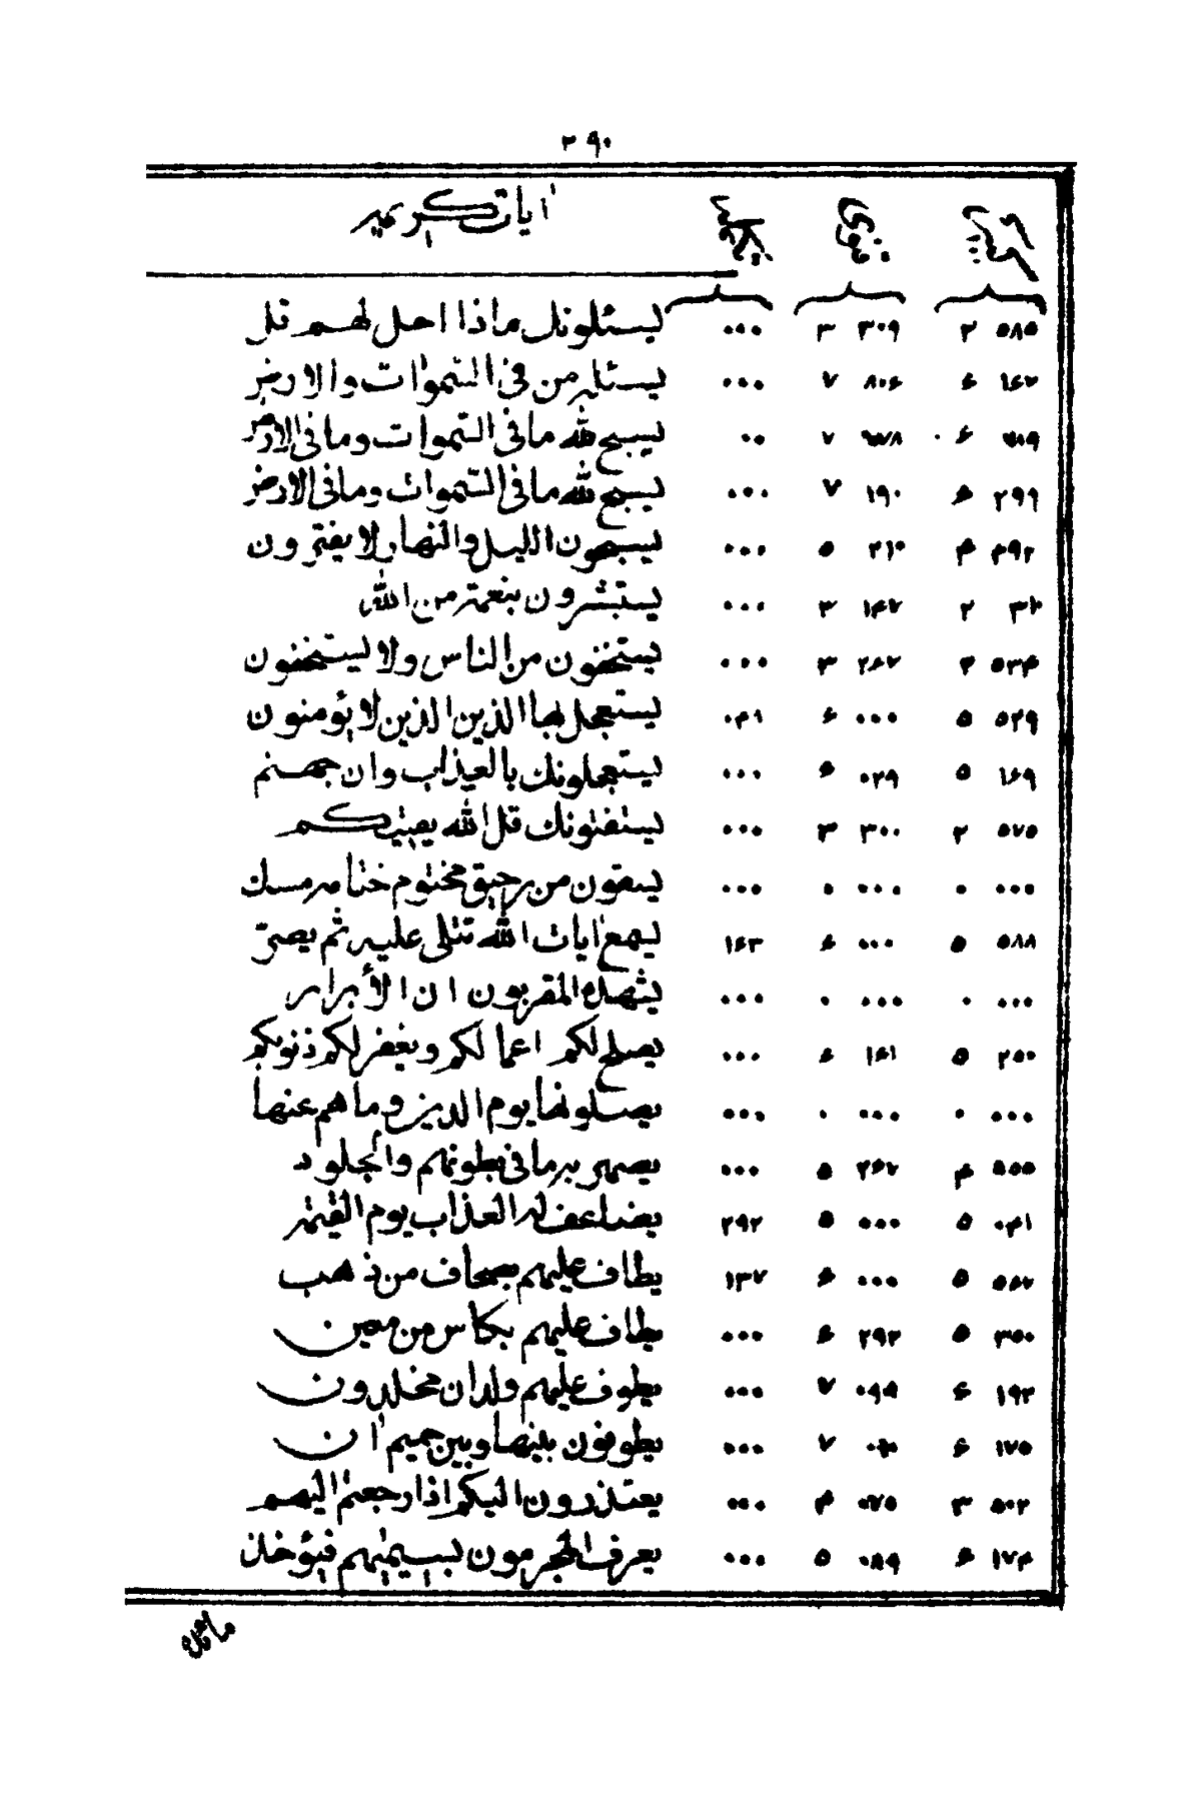 ٢٩٠
اٰيات كريمه
٥٨٥ ٢ ٣٠٩ ٣ ٠٠٠ يسئلونك ماذا احل لهم قل
١٤٢ ٤ ٨٠٤ ٧ ٠٠٠ يسئله من في السموات والارض
٤ ٧ ٠٠ يسبح لله ما في السموات وما في الارض
٢٩٩ ٤ ١٩٠ ٧ ٠٠٠ يسبح لله ما في السموات وما في الارض
٣٩٢ ٣ ٢١٠ ٥ ٠٠٠ يسبحون الليل والنهار لا يفترون
٢ ١٤٧ ٣ ٠٠٠ يستبشرون بنعمة من الله
٥٣٤ ٢ ٢٤٧ ٣ ٠٠٠ يستخفون من الناس ولا يستخفون
٥٢٩ ٥ ٠٠٠ ٤ ٠٣١ يستعجل بها الذين الذين لا يؤمنون
١٤٩ ٥ ٠٢٩ ٤ ٠٠٠ يستعجلونك بالعذاب وان جهنم
٥٧٥ ٢ ٣٠٠ ٣ ٠٠٠ يستفتونك قل الله يفتيكم
٠٠٠ ٠ ٠٠٠ ٠ ٠٠٠ يسقون من رحيق مختوم ختامه مسك
٥٨٨ ٥ ٠٠٠ ٤ ١٤٣ يسمع اٰيات الله تتلى عليه ثم يصرّ
٠٠٠ ٠ ٠٠٠ ٠ ٠٠٠ يشهده المقربون ان الأبرار
٢٥٠ ٥ ١٤١ ٤ ٠٠٠ يصلح لكم اعمالكم ويغفر لكم ذنوبكم
٠٠٠ ٠ ٠٠٠ ٠ ٠٠٠ يصلونها يوم الدين وما هم عنها
٥٥٥ ٣ ٢٤٢ ٥ ٠٠٠ يصهر به ما في بطونهم والجلود
٠٣١ ٥ ٠٠٠ ٥ ٢٩٢ يضاعف له العذاب يوم القيٰمة
٥٤٢ ٥ ٠٠٠ ٤ ١٣٧ يطاف عليهم بصحاف من ذهب
٣٥٠ ٥ ٢٩٢ ٤ ٠٠٠ يطاف عليهم بكاس من معين
١٩٢ ٤ ٧ ٠٠٠ يطوف عليهم ولدان مخلدون
١٧٥ ٤ ٧ ٠٠٠ يطوفون بينها وبين حميم اٰن
٥٠٢ ٣ ٠٧٥ ٣ ٠٠٠ يعتذرون اليكم اذا رجعتم اليهم
١٧٤ ٤ ٠٨٩ ٥ ٠٠٠ يعرف المجرمون بسيمٰهم فيؤخذ